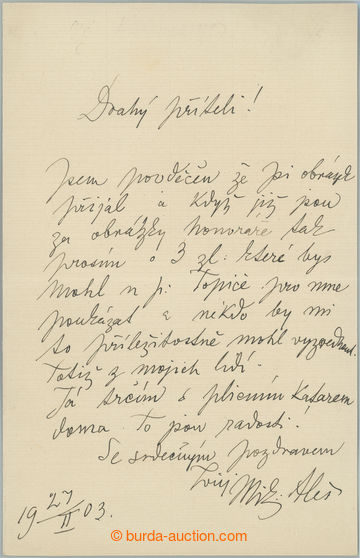 Drahý příteli!
Jsem povděčen že jsi obrázek
přijal a když již jsou
za obrázky honoráře tak
prosím o 3 zl: které bys
mohl u p: Topiče pro mne
poukázat a někdo by mi
to příležitostně mohl vyzvednout.
Totiž z mojich lidí.
Já trčím s plicním katarem
doma. To jsou radosti.
Se srdečným pozdravem
Tvůj Mik. Aleš
19 27/II 03.
burda-auction.com